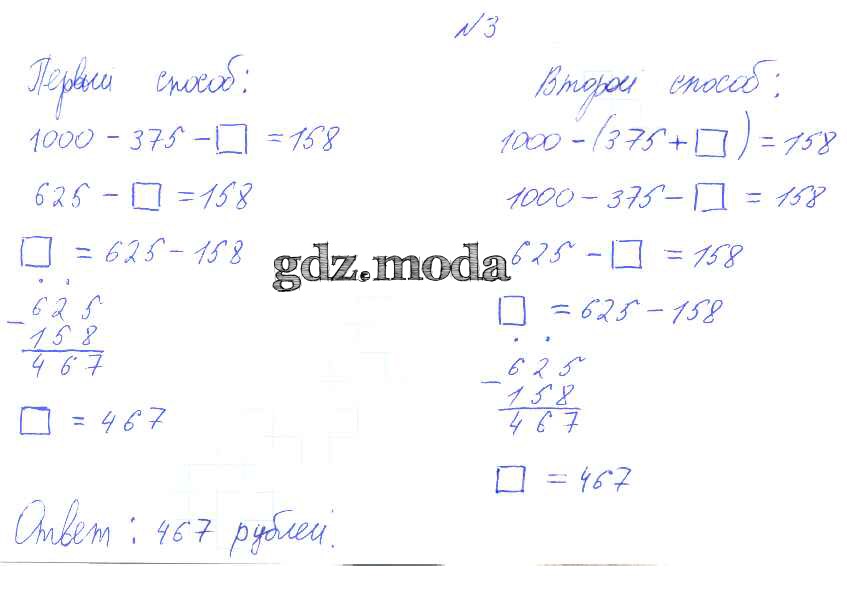 №3
Первый способ:
1000 - 375 - □ = 158
625 - □ = 158
□ = 625 - 158
625
- 158
467
□ = 467
Второй способ:
1000 - (375 + □) = 158
1000 - 375 - □ = 158
625 - □ = 158
□ = 625 - 158
625
- 158
467
□ = 467
Ответ: 467 рублей.
gdz.moda